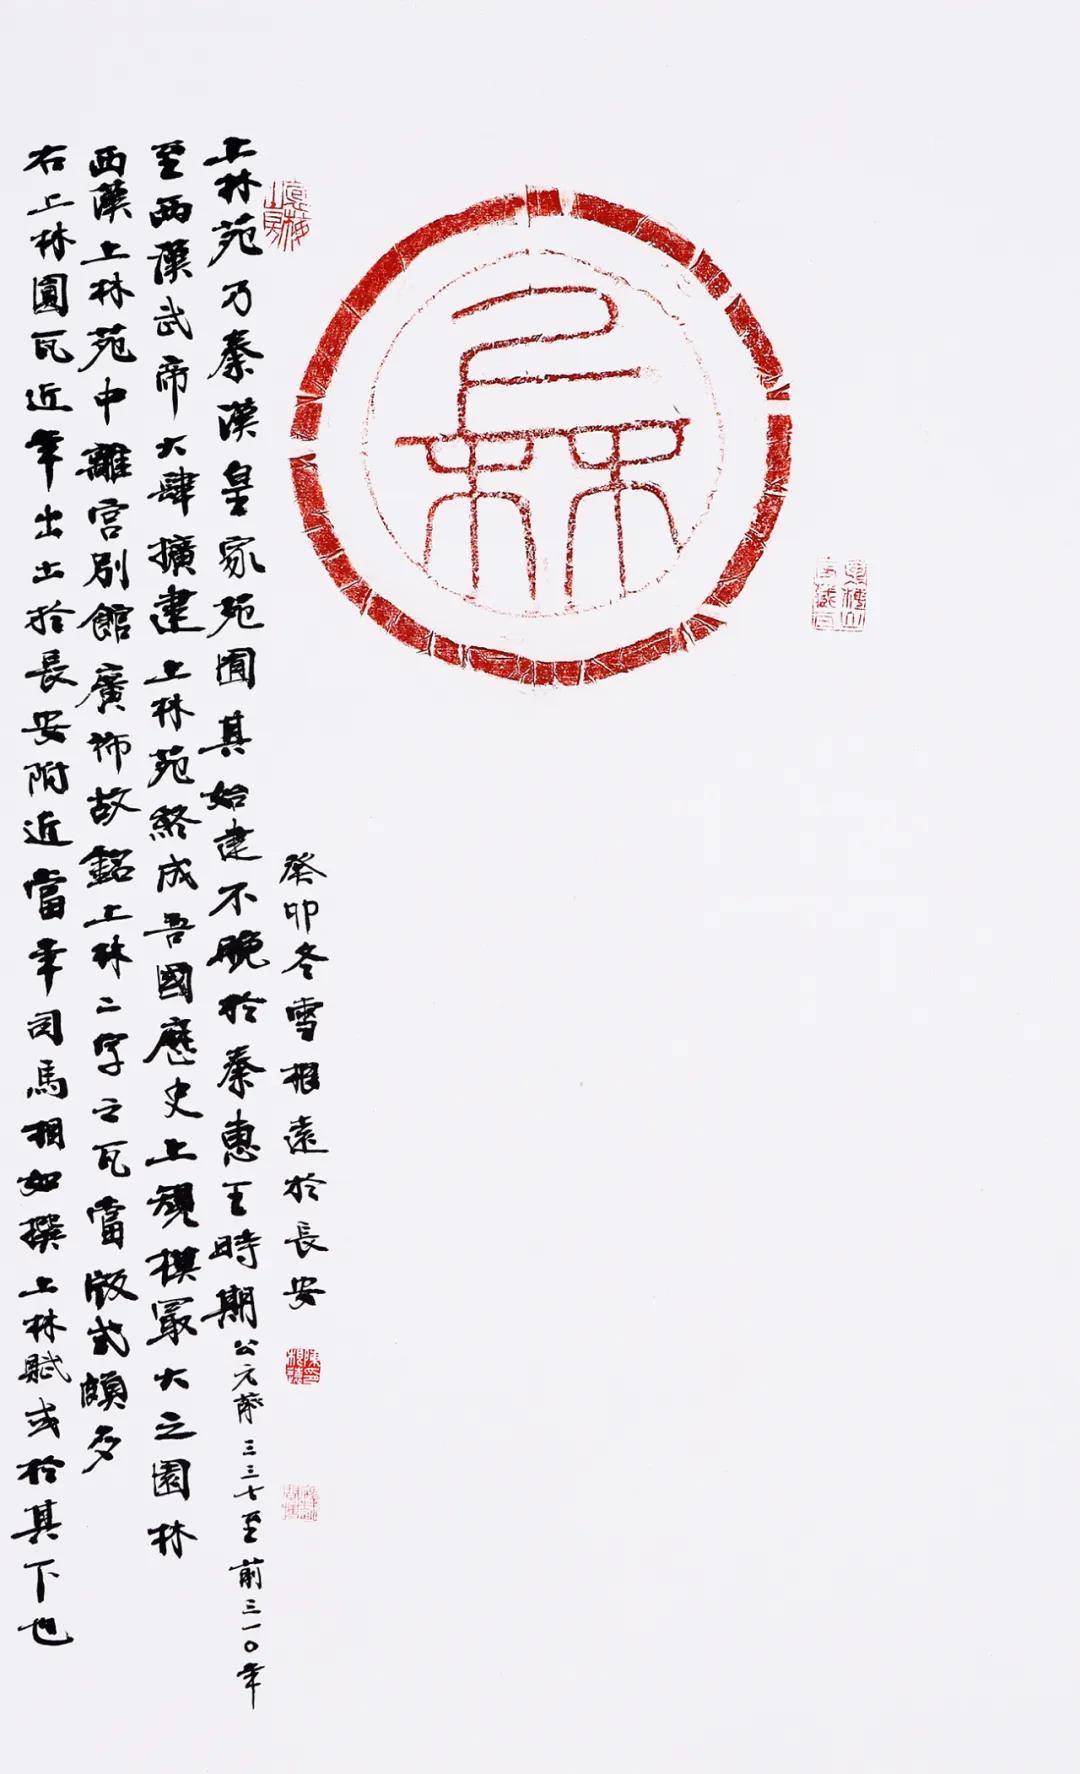 上林
上林苑乃秦漢皇家苑囿其始建不晚於秦惠王時期公元前三三七至前三一〇年
至西漢武帝大肆擴建上林苑終成吾國歷史上規模最大之園林
西漢上林苑中離宮別館廣佈故銘上林二字之瓦當版式頗多
右上林圓瓦近年出土於長安附近當年司馬相如撰上林賦或於其下也
癸卯冬雪根遠於長安